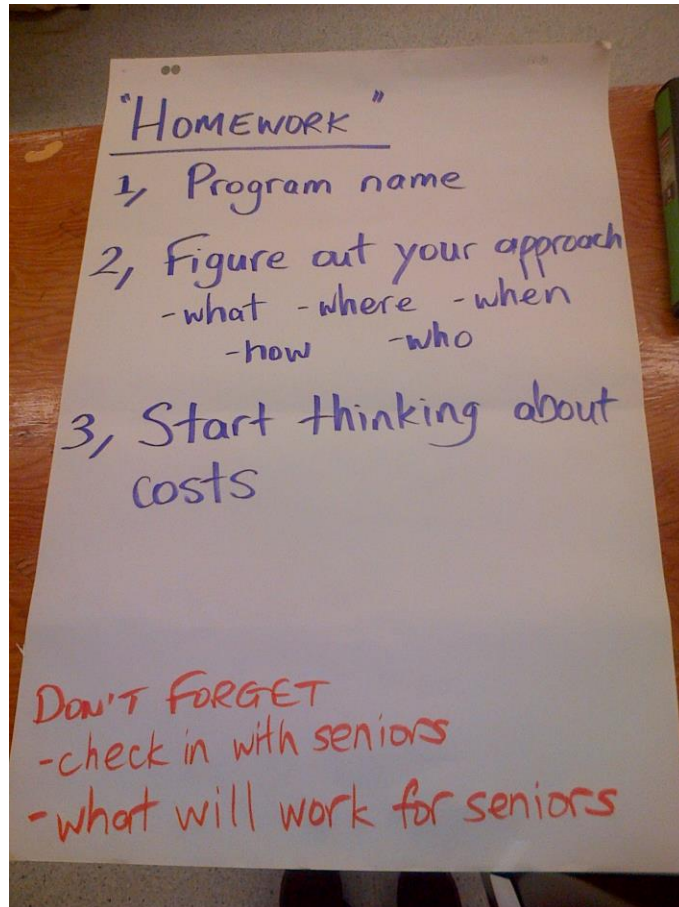 "HOMEWORK"
1, Program name
2, Figure out your approach
-what -where -when
-how -who
3, Start thinking about
costs
DON'T FORGET
-check in with seniors
-what will work for seniors